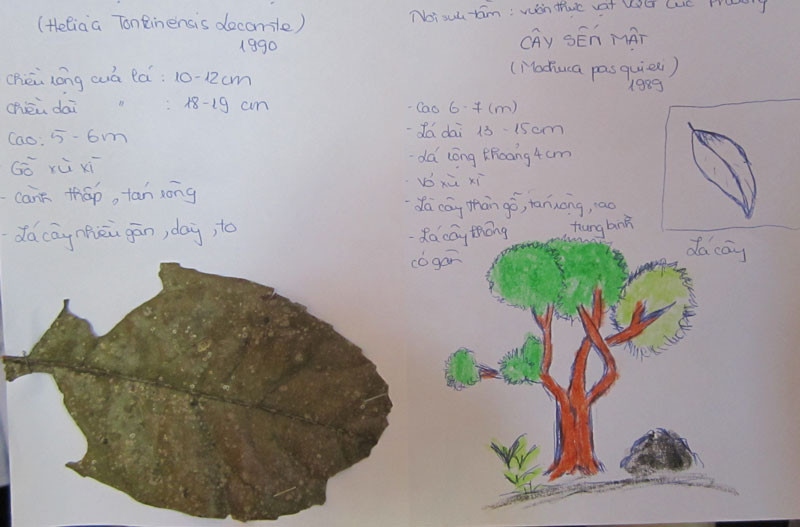 (Helicia Tonkinensis lecomte)
1990
chiều rộng của lá : 10-12cm
chiều dài " : 18-19 cm
Cao: 5 - 6m
- Gỗ xù xì
- Cành thấp, tán rộng
- Lá cây nhiều gân, dày, to
Nơi sưu tầm : vườn thực vật VQG Cúc Phương
CÂY SẾN MẬT
(Madhuca pasquieri)
1989
- Cao 6-7 (m)
- Lá dài 13 - 15cm
- Lá rộng khoảng 4cm
- Vỏ xù xì
- Là cây thân gỗ, tán rộng, cao
trung bình
- Lá cây không
có gân
Lá cây